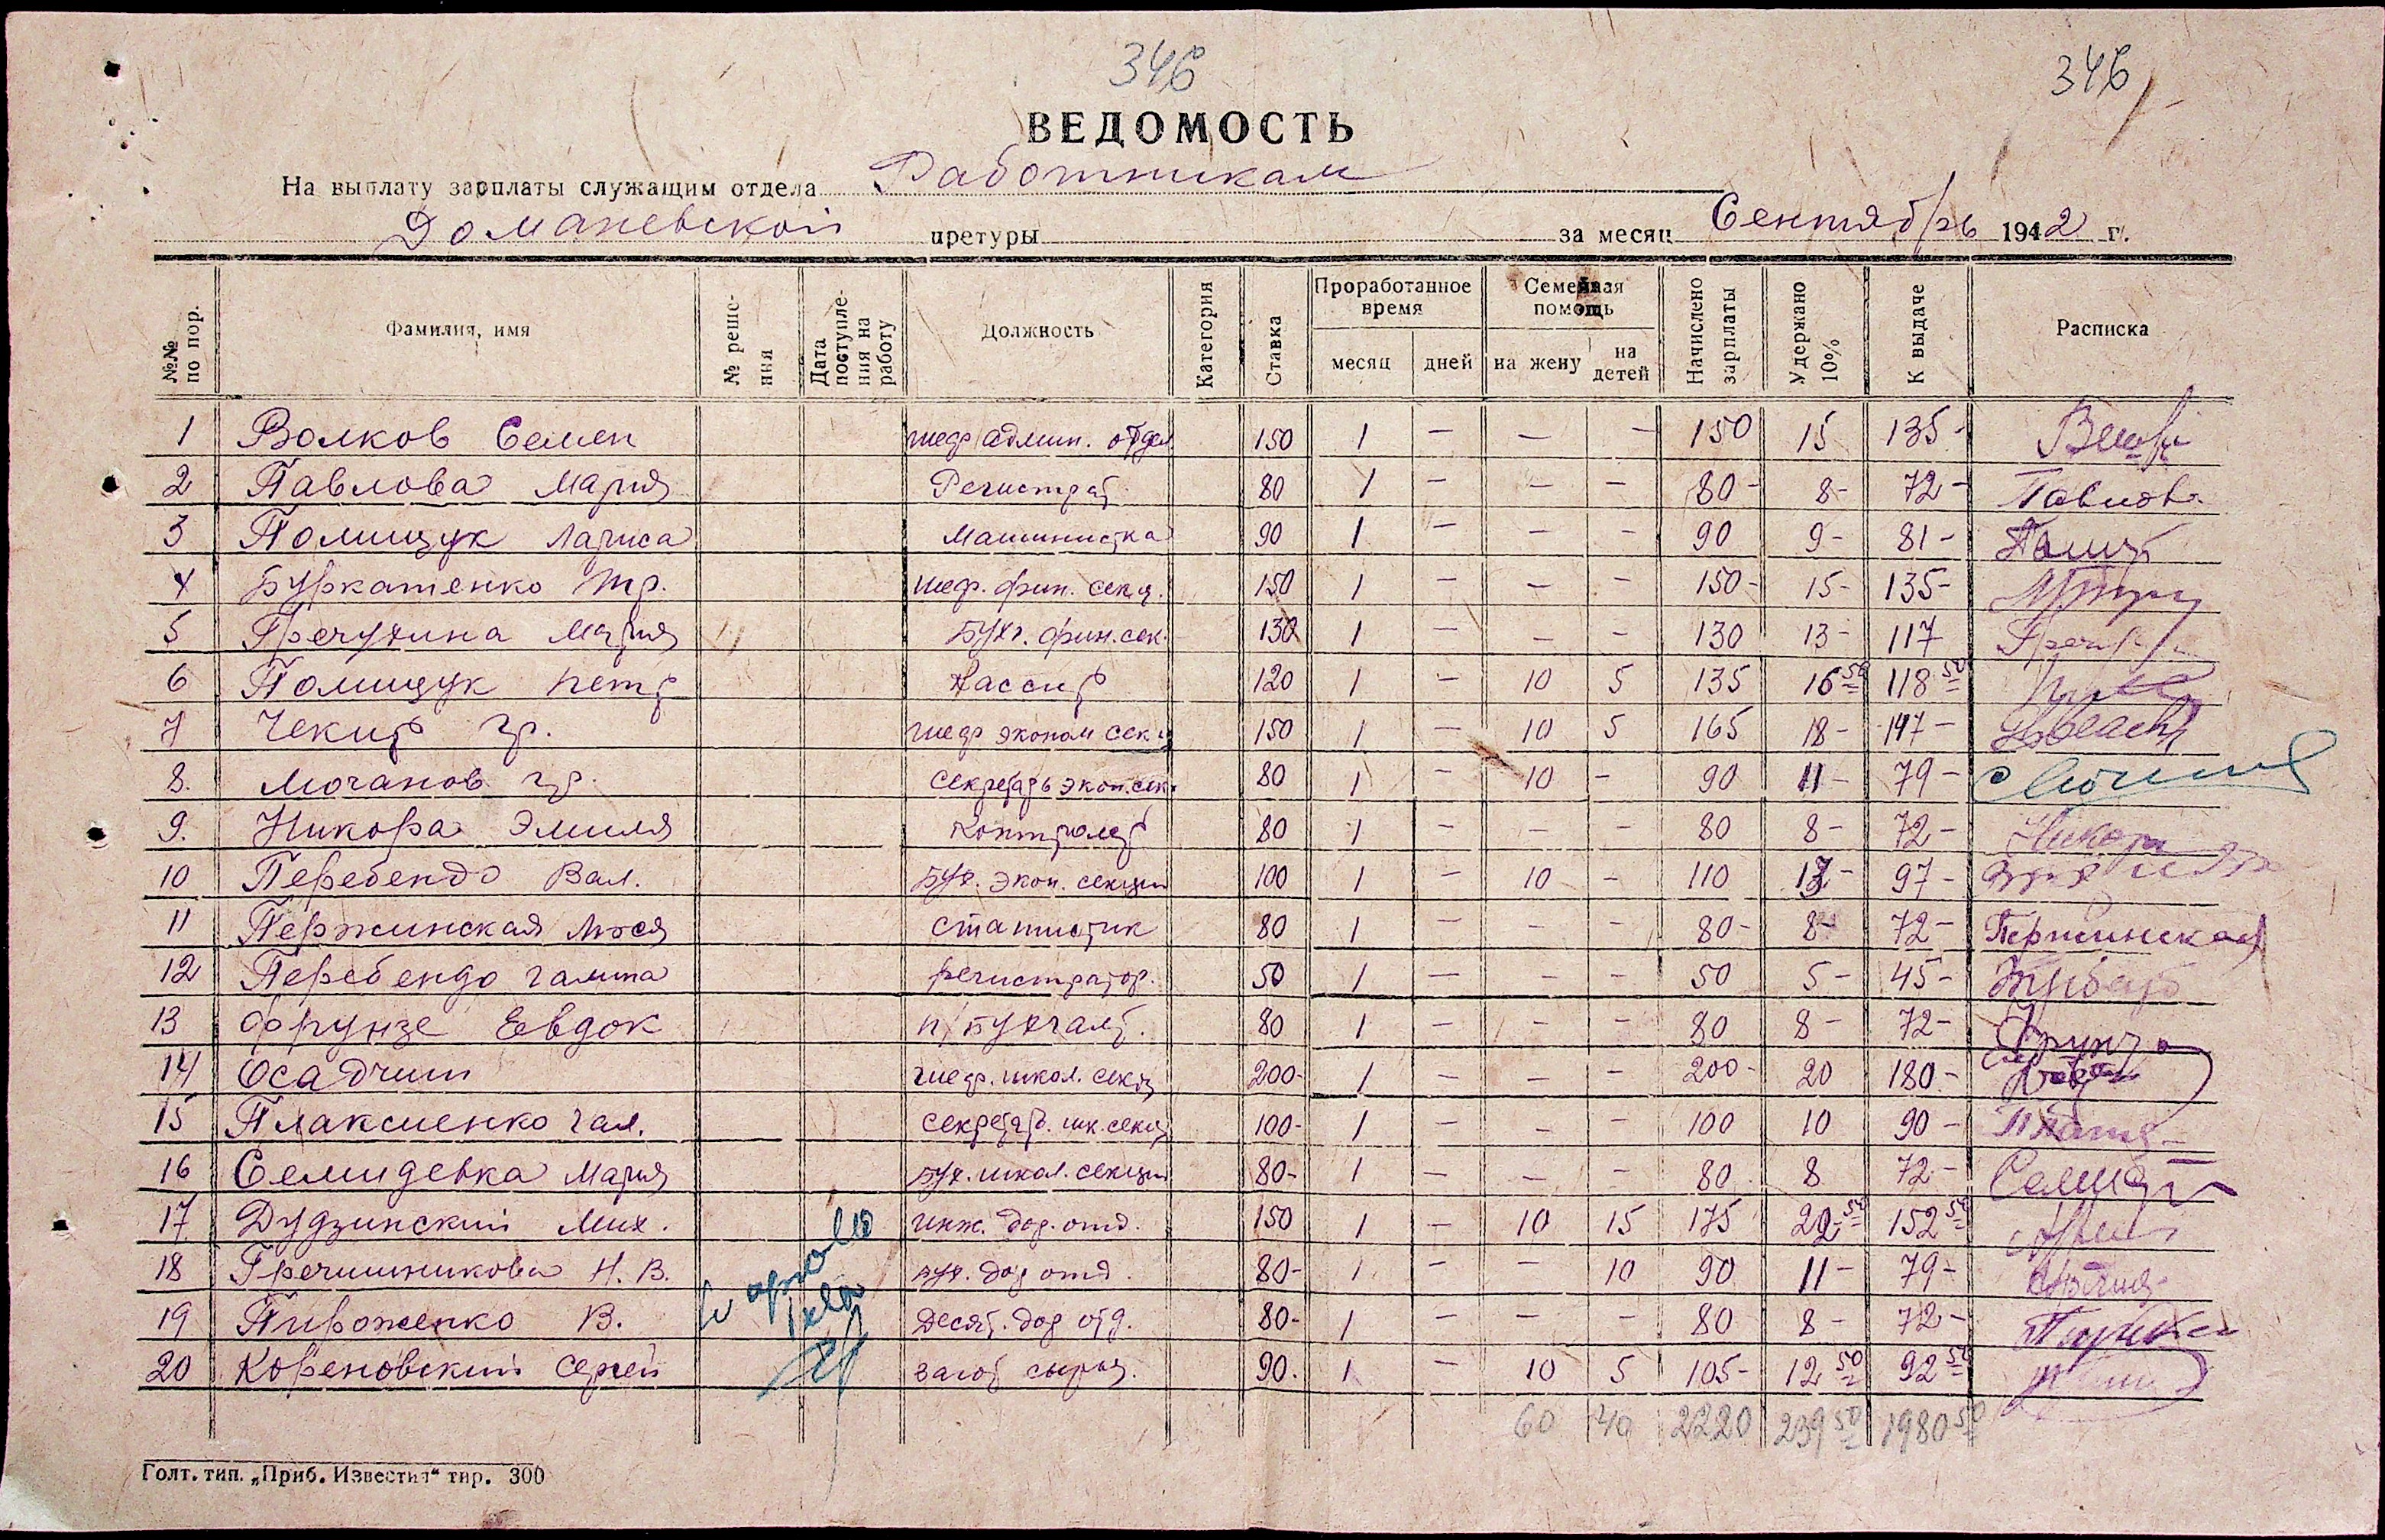 346
346
ВЕДОМОСТЬ
На выплату зарплаты служащим отдела Работникам
Доманевской претуры за месяц Сентябрь 1942 г.
№№ по пор. Фамилия, имя № реше-ния Дата поступле-ния на работу Должность Категория Ставка Проработанное время Семейная помощь Начислено зарплаты Удержано 10% К выдаче Расписка
месяц дней на жену на детей
1 Волков Семен шеф админ. отдел 150 1 — — — 150 15 135-
2 Павлова Мария Регистрат 80 1 — — — 80- 8- 72- Павлова
3 Полищук Лариса Машинистка 90 1 — — — 90 9- 81-
4 Буркатенко Тр. шеф. фин. секц. 150 1 — — — 150- 15- 135-
5 Гречухина Мария Бухг. фин. сек. 130 1 — — — 130 13- 117
6 Полищук Петр Кассир 120 1 — 10 5 135 16 50 118 50
7 Чекир Гр. шеф эконом секц 150 1 — 10 5 165 18- 147-
8. Мочанов Гр. Секретарь экон. сек. 80 1 — 10 — 90 11- 79-
9. Никора Эмиля Контролер 80 1 — — — 80 8- 72- Никора
10 Перебендо Вал. Бух. экон. секции 100 1 — 10 — 110 13- 97-
11 Пержинская Люся статистик 80 1 — — — 80- 8- 72- Пержинская
12 Перебендо Галина регистратор. 50 1 — — — 50 5- 45-
13 Фрунзе Евдок п/бухгалт. 80 1 — — — 80 8- 72- Фрунзе
14 Осадчий шеф. школ. секц 200- 1 — — — 200- 20 180-
15 Плаксиенко Гал. секретарь. шк. секц 100- 1 — — — 100 10 90-
16 Семидевка Мария Бух. школ. секции 80- 1 — — — 80 8 72-
17. Дудзинский Мих. инж. дор. отд. 150 1 — 10 15 175 22 50 152 50
18 Гречишникова Н. В. Бух. дор отд. 80- 1 — — 10 90 11- 79-
19 Пироженко В. Десят. дор отд. 80- 1 — — — 80 8- 72-
20 Кореновский Сергей загот сырья. 90. 1 — 10 5 105- 12 50 92 50
60 40 2220 239 50 1980 50
Голт. тип. „Приб. Известия“ тир. 300